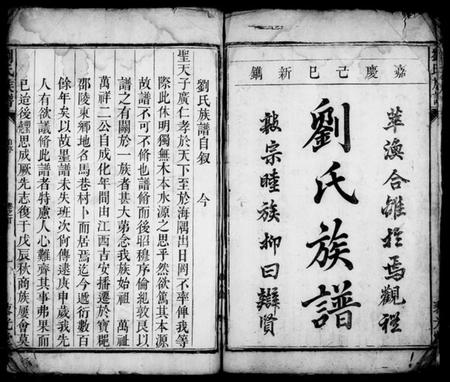 嘉慶己巳新鐫
萃渙合離於焉觀禮
劉氏族譜
敦宗睦族抑曰辯賢
劉氏族譜自叙
今
聖天子廣仁孝於天下至於海隅出日罔不率俾我等
際此休明獨無木本水源之思乎然欲篤其本源
故譜不可不脩也譜脩而後昭穆序倫紀敦良以
譜之有關於一族者甚大第念我族始祖 萬祉
萬祥二公自成化年間由江西吉安播遷於寶慶
邵陵東鄉地名馬巷村卜而居焉迄今遞衍數百
餘年矣以故墨譜未失班次尚傳逮庚申歲我先
人有欲議脩此譜者特慮人心難齊其事弗果而
已迨後纓思成厥先志復于戊辰秋商族屢會莫